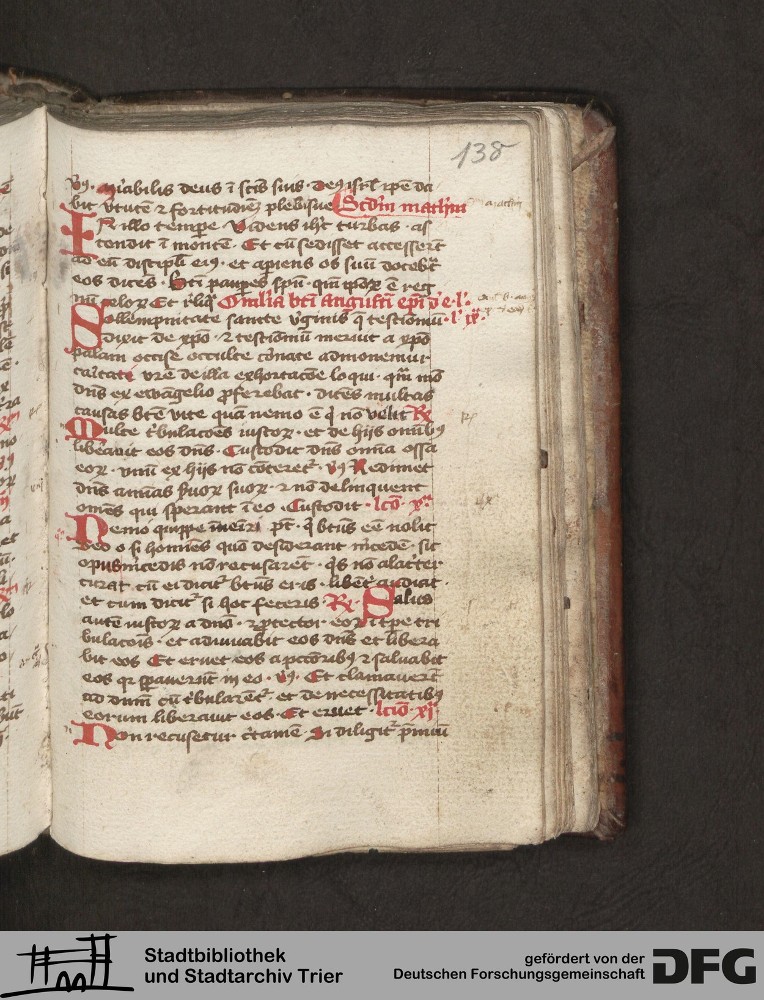 138
vͥ. Mirabilis deus ī scīs suis. deꝯ isrl̄ ip̄e da
bit v̓tutē ⁊ fortitudinē plebi sue Scdm̄ mathm̄
IN illo tempe. Videns ih̄c turbas. as
cendit ī montē. Et cū sedisset accesserūt
ad eū discipl̓i eiꝯ. et apiens os suū docebat
eos dicēs. Bt̄i paupes sp̄u. qm̄ ipoꝝ ē reg
nū celoꝝ Et rl̓iqͣ Omilia bt̄i augustī ep̄i
Sollempnitate sancte v̓ginis q̄ testimoniū. l̓ ix.
dixit de xp̄o. ⁊ testimoniū meruit a xp̄o
palam occise occulte coronate admonemur
caritati vr̄e de illa exhortacōe loqui. qm̄ mō
dn̄s ex ewāngelio p̄ferebat. dicēs multas
causas bt̄e vite quā nemo ē qͥ nō velit R̷
Multe tͥbulacōes iustoꝝ. et de hijs om̄ibꝯ
liberauit eos dn̄s. Custodit dn̄s om̄ia ossa
eoꝝ. vnū ex hijs nō cōteretͬ. vͥ Redimet
dn̄s aīmas s̓uoꝝ suoꝝ. ⁊ nō delinquent
om̄es qui sperant ī eo. Custodit. lcͦō. xͣ
Nemo quippe īueīri pt̄. qͥ bt̄us eē nolit
Sed o si homīes quō desiderant m̓cedē. sic
opus m̓cedis nō recusarēt. qͥs nō alacͥter
currat cū ei dicitͬ bt̄us eris. libent̓ audiat
et cum dicitͬ si hoc feceris. R̷ Salus
autē iustoꝝ a dn̄o. ⁊ p̄tector eoꝝ ī tp̄e tri
bulacōis. et adiuuabit eos dn̄s et libera
bit eos Et eruet eos a pccōribꝯ ⁊ saluabit
eos qꝛ sp̄auerūt in eo. vͥ. Et clamauerūt
ad dn̄m cū tͥbularentͬ. et de necessitatibꝯ
eorum liberauit eos. Et eruet. lcͦō. xj
Non recusetur c̓tamē. Si diligitͬ p̄miū
Stadtbibliothek
und Stadtarchiv Trier
gefördert von der
Deutschen Forschungsgemeinschaft
DFG